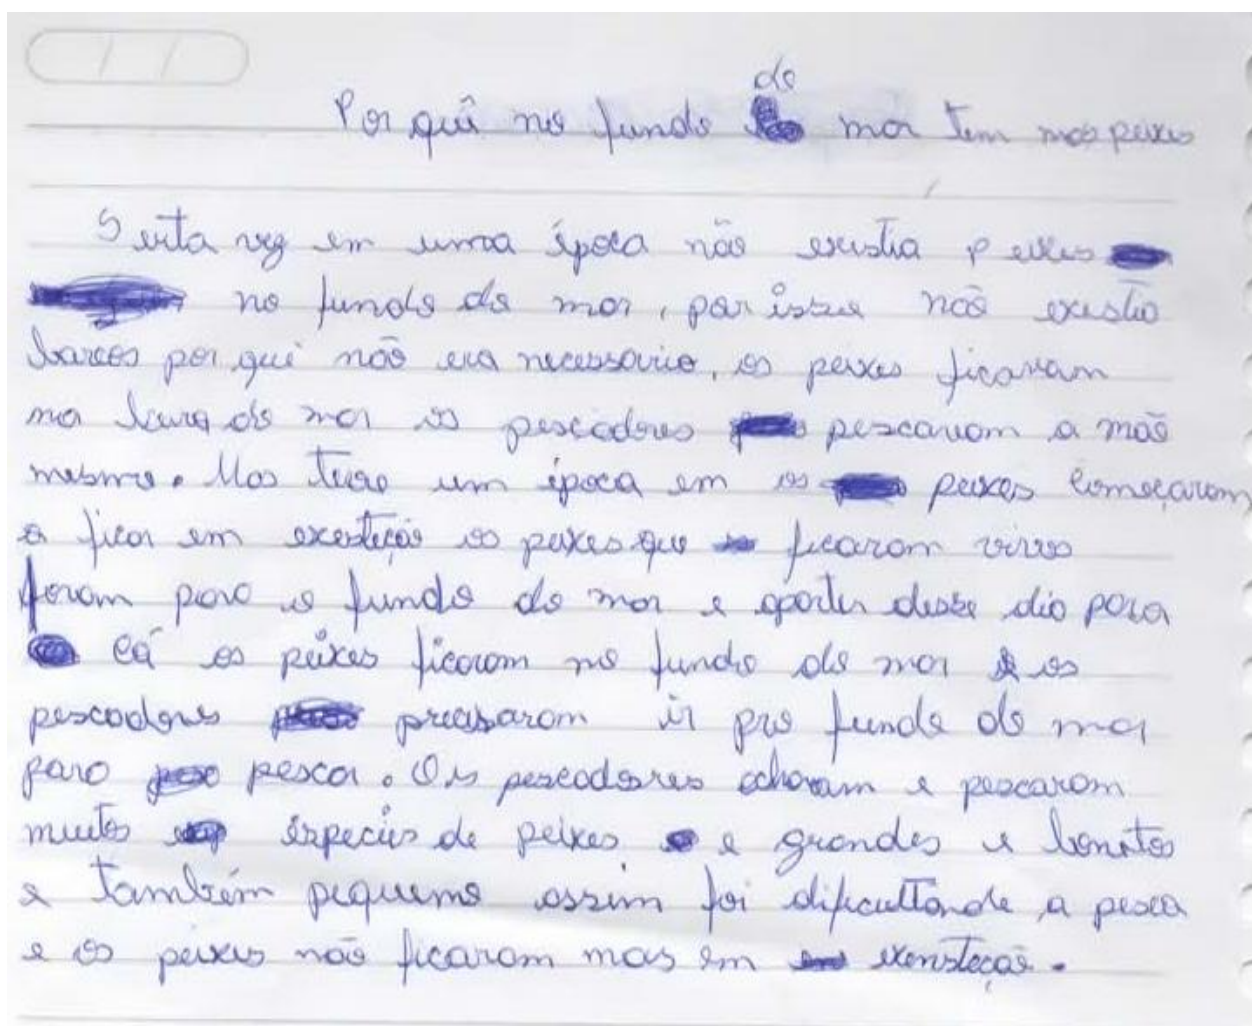 do
Por quê no fundo mar tem mas peixes
Serta vez em uma época não existia peixes
no fundo do mar, por isso não existia
barcos por que não era necessario, os peixes ficavam
na do mar os pescadores pescavam a mão
mesmo. Mas teve um época em os peixes começaram
a ficar em os peixes que ficaram vivos
foram para o fundo do mar e aparter desse dia para
cá os peixes ficaram no fundo do mar e os
pescadores precisaram ir pro fundo do mar
para pescar. Os pescadores acharam e pescaram
muitos espécies de peixes e grandes e bonitos
e também pequeno assim foi dificultando a pesca
e os peixes não ficaram mas em